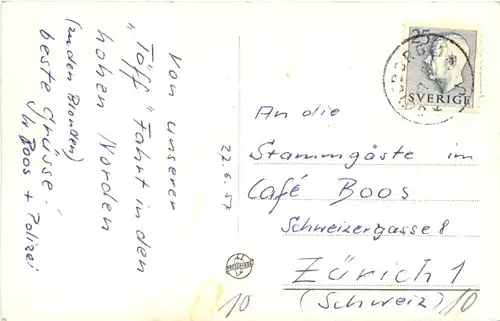 von unserer
"Töff" Fahrt in den
hohen Norden
(zu den Blonden)
beste Grüsse!
Boos + Polizei
22.6.57
25
SVERIGE
An die
Stammgäste im
Café Boos
Schweizergasse 8
Zürich 1
(Schweiz)
10
10